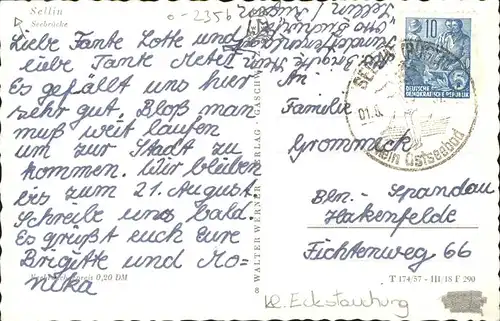 Sellin
Seebrücke
Liebe Tante Lotte und
liebe Tante Mete!
Es gefällt uns hier
sehr gut. Bloß man
muß weit laufen
um zur Stadt zu
kommen. Wir bleiben
bis zum 21. August.
Schreibe uns bald.
Es grüßt euch Eure
Brigitte und Mo-
nika
0,20 DM
8 WALTER WERNER VERLAG - GASCHW
10
DEUTSCHE
DEMOKRATISCHE REPUBLIK
5
SELLIN (RÜGEN)
01.8.
Dein Ostseebad
An
Familie
Grommeck
Bln.- Spandau
Hakenfelde
Fichtenweg 66
T 174/57 - III/18 F 290
kl. Eckstauchung